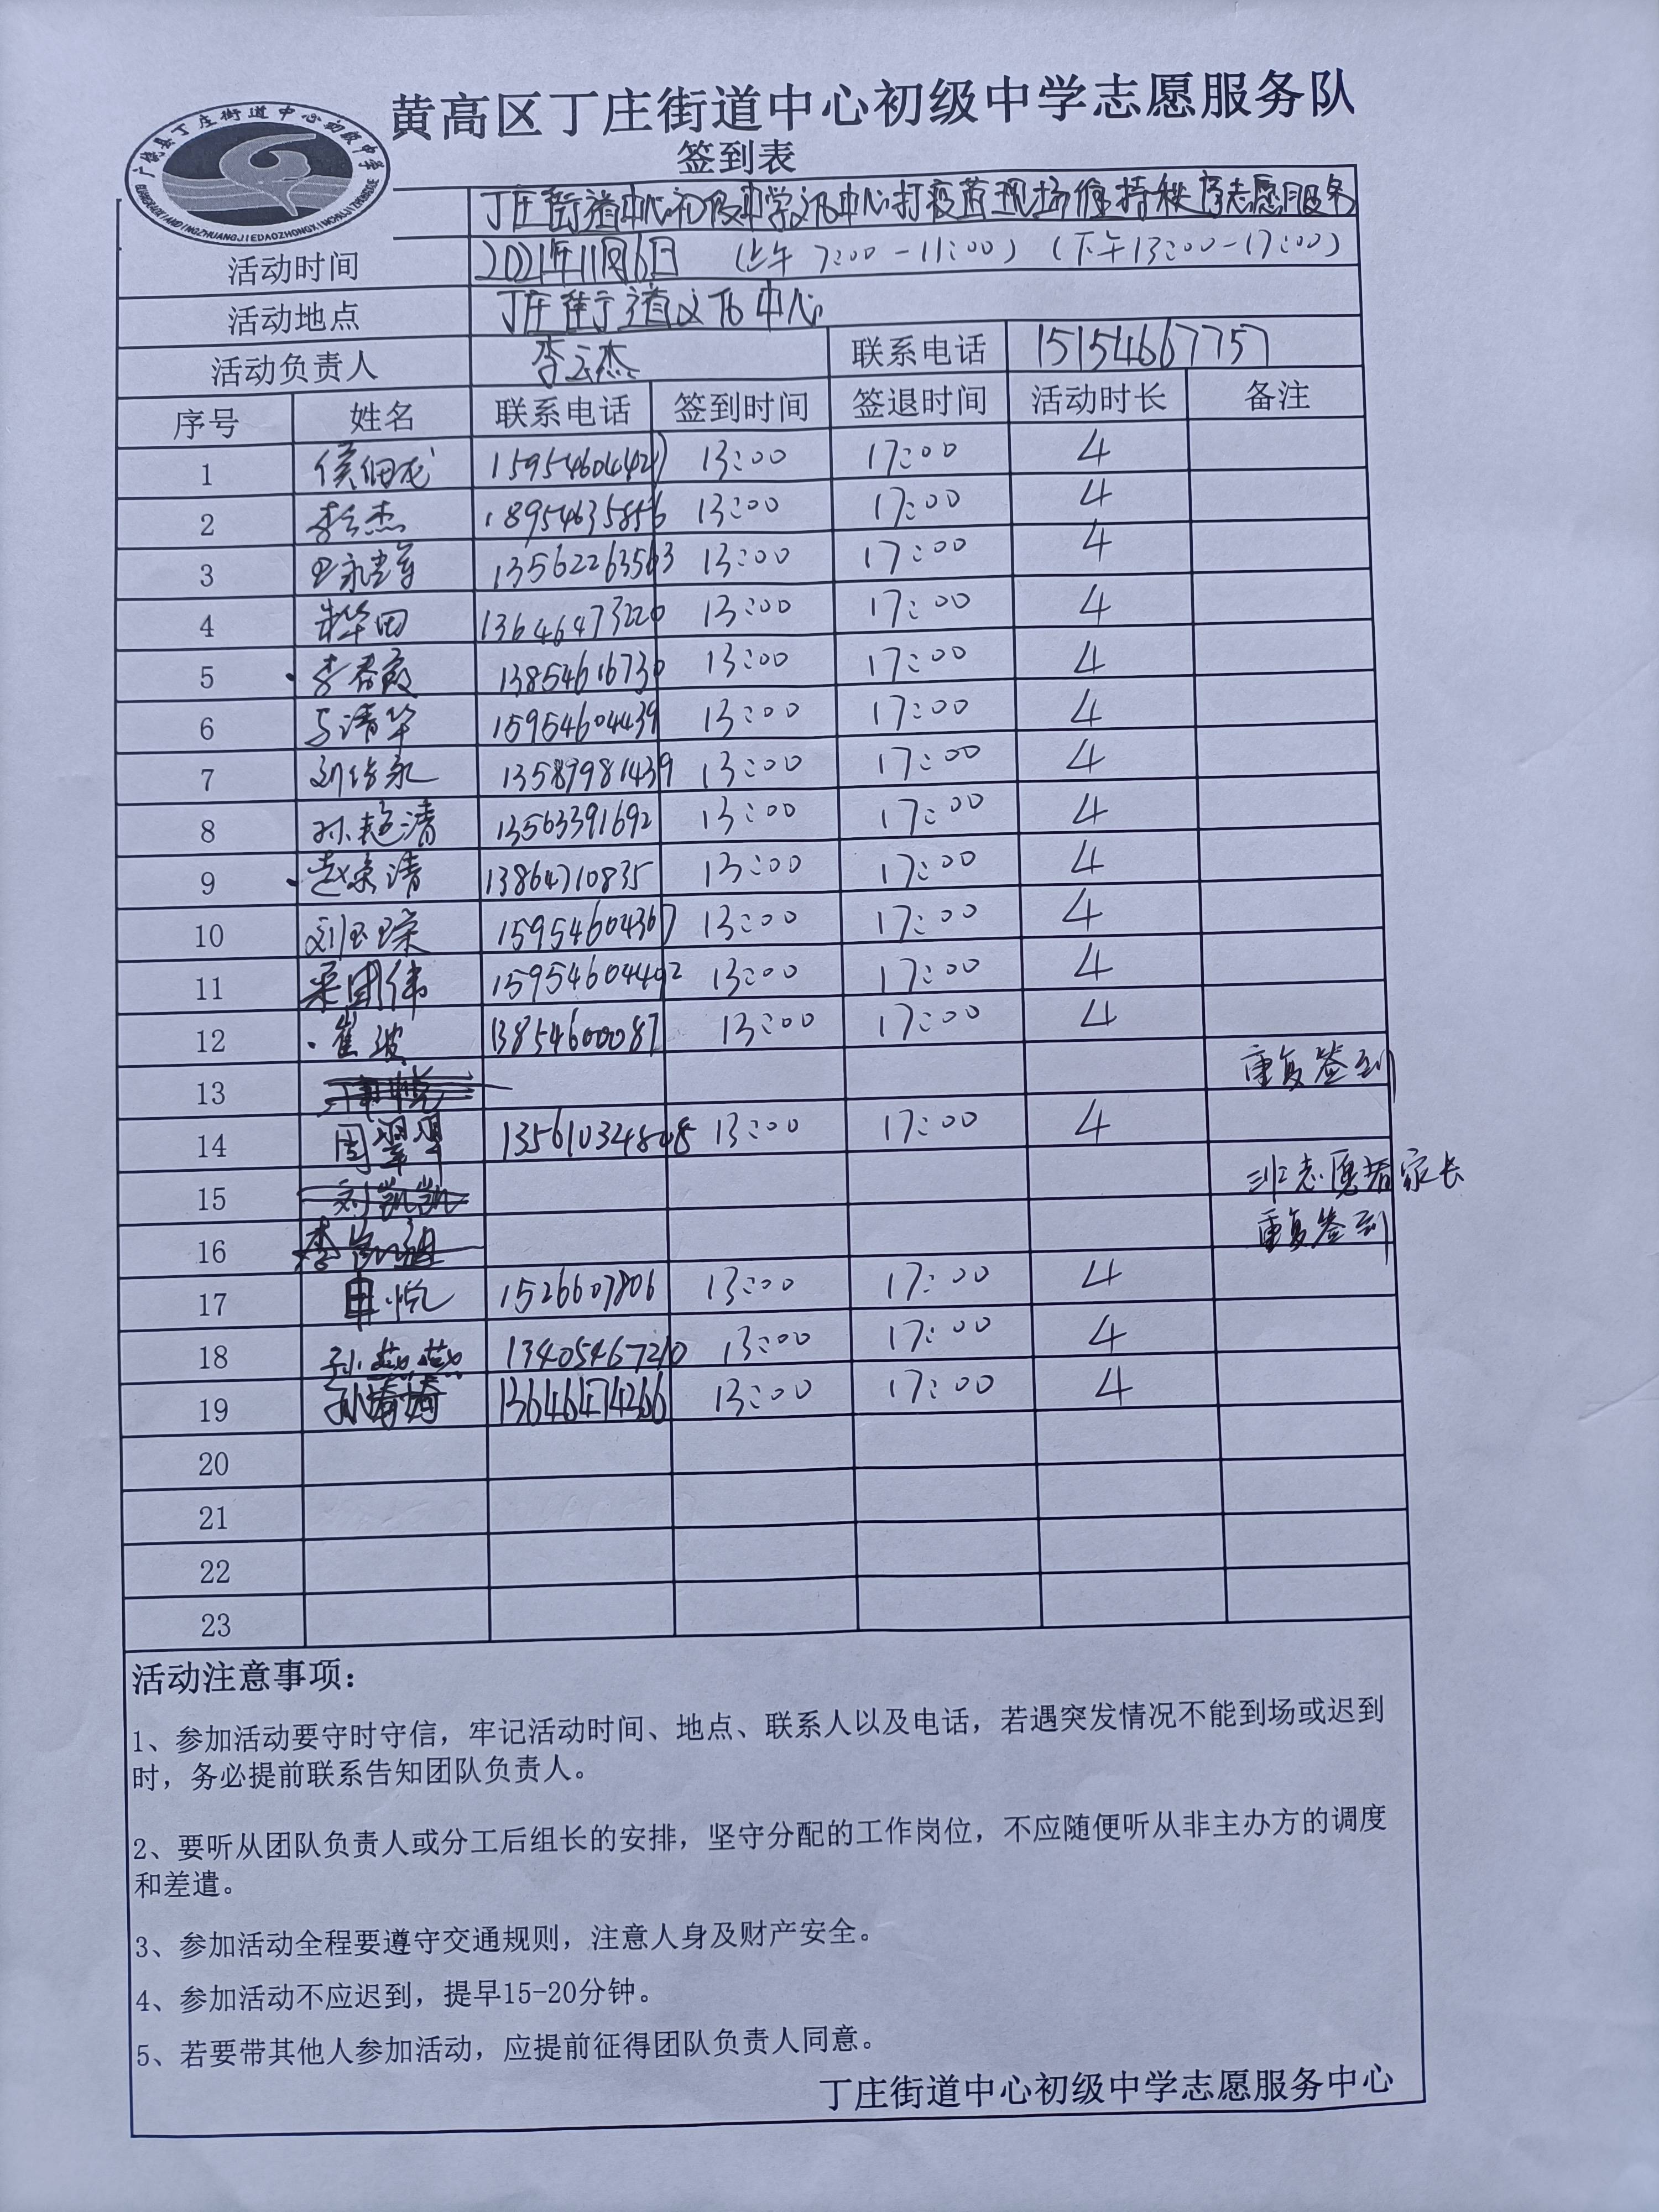 黄高区丁庄街道中心初级中学志愿服务队
广饶县丁庄街道中心初级中学
签到表
丁庄街道中心初级中学文化中心打疫苗现场维持秩序志愿服务
活动时间 2021年11月6日 (上午 7:00-11:00) (下午13:00-17:00)
活动地点 丁庄街道文化中心
活动负责人 李云杰 联系电话 15154667757
序号 姓名 联系电话 签到时间 签退时间 活动时长 备注
1 15954604427 13:00 17:00 4
2 李云杰 18954635856 13:00 17:00 4
3 13562263563 13:00 17:00 4
4 13646473220 13:00 17:00 4
5 李春霞 1385461673 13:00 17:00 4
6 马清华 15954604439 13:00 17:00 4
7 13589981439 13:00 17:00 4
8 孙艳清 13563391692 13:00 17:00 4
9 赵荣清 13864710835 13:00 17:00 4
10 刘玉荣 15954604367 13:00 17:00 4
11 15954604492 13:00 17:00 4
12 崔波 13854600087 13:00 17:00 4
13 重复签到
14 周翠翠 13561032484 13:00 17:00 4
15 刘凯凯 非志愿者家长
16 重复签到
17 田悦 1526607806 13:00 17:00 4
18 孙燕燕 13405467210 13:00 17:00 4
19 孙婷婷 13646474366 13:00 17:00 4
20
21
22
23
活动注意事项：
1、参加活动要守时守信，牢记活动时间、地点、联系人以及电话，若遇突发情况不能到场或迟到
时，务必提前联系告知团队负责人。
2、要听从团队负责人或分工后组长的安排，坚守分配的工作岗位，不应随便听从非主办方的调度
和差遣。
3、参加活动全程要遵守交通规则，注意人身及财产安全。
4、参加活动不应迟到，提早15-20分钟。
5、若要带其他人参加活动，应提前征得团队负责人同意。
丁庄街道中心初级中学志愿服务中心